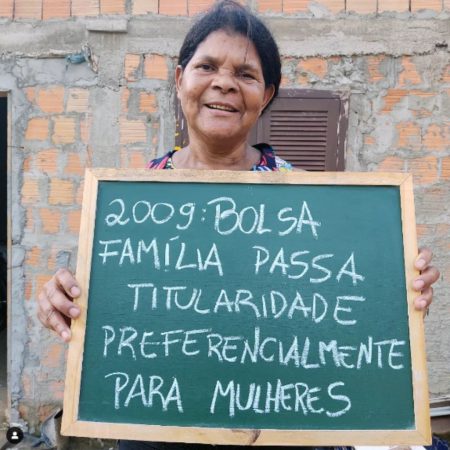 2009: BOLSA
FAMÍLIA PASSA
TITULARIDADE
PREFERENCIALMENTE
PARA MULHERES